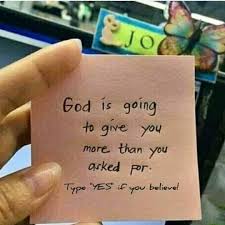 JO
God is going
to give you
more than you
asked for.
Type "YES" if you believe!